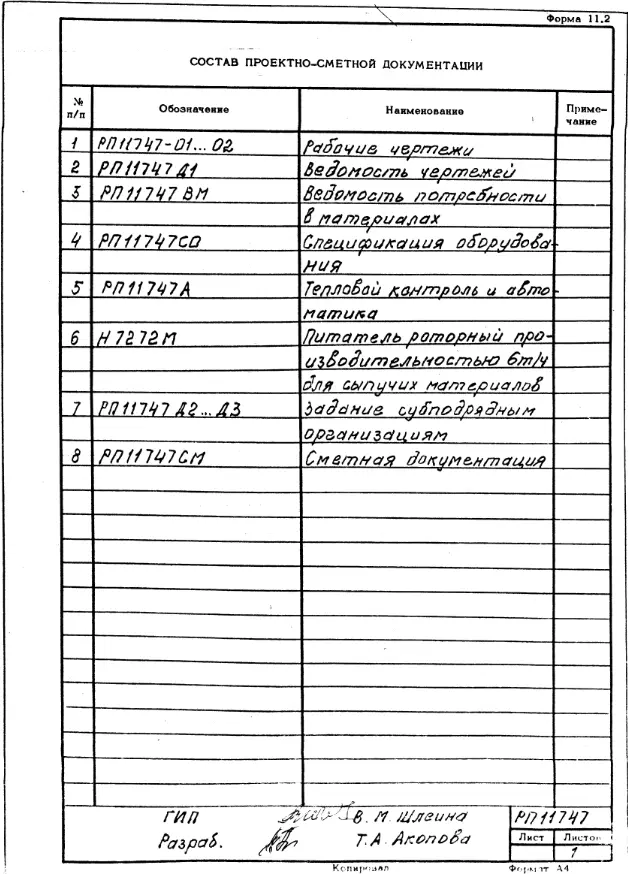 Форма 11.2
СОСТАВ ПРОЕКТНО-СМЕТНОЙ ДОКУМЕНТАЦИИ
№ п/п Обозначение Наименование Приме-
чание
1 РП11747-01...02 Рабочие чертежи
2 РП11747Д1 Ведомость чертежей
3 РП11747ВМ Ведомость потребности
в материалах
4 РП11747СО Спецификация оборудова-
ния
5 РП11747А Тепловой контроль и авто
матика
6 Н7272М Питатель роторный про-
изводительностью 6т/ч
для сыпучих материалов
7 РП11747Д2...Д3 Задание субподрядным
организациям
8 РП11747СМ Сметная документация
ГИП В. М. Шлеина РП11747
Разраб. Т.А. Акопова Лист Листов
1
Копировал Формат А4